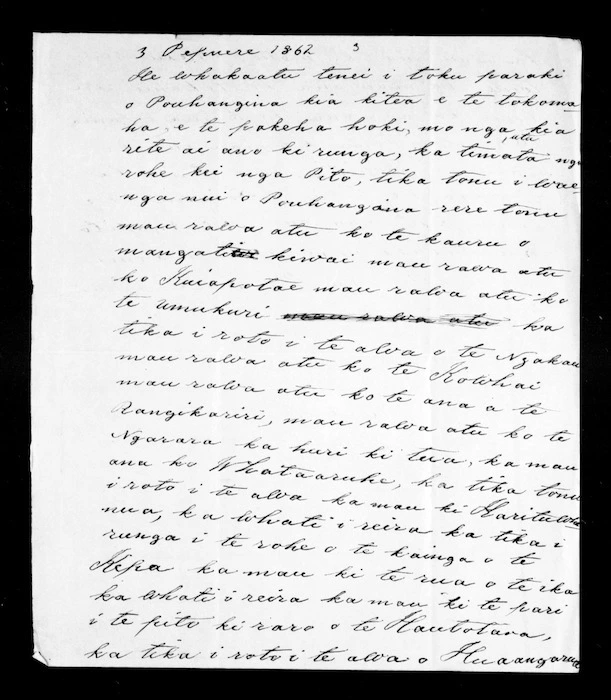 3 Pepuere 1862 3
He whakaatu tenei i toku paraki
o Pouhangina kia kitea e te tokoma-
ha, e te pakeha hoki, mo nga kia
rite ai ano ki runga, ka timata atu nga
rohe kei nga Pito, tika tonu i wae-
nga nui o Pouhangina rere tonu
mau rawa atu ko te kauru o
mangati kiwai mau rawa atu
ko Kaiapotae mau rawa atu ko
te umukuri mau rawa atu ka
tika i roto i te awa o te Ngakau
mau rawa atu ko te Kowhai
mau rawa atu ko te ana a te
Rangikariri, mau rawa atu ko te
Ngarara ka huri ki tua, ka mau
ana ko Whataaruhe, ka tika tonu
i roto i te awa ka mau ki Harituwhe
nua, ka whati i reira ka tika i
runga i te rohe o te kainga o te
Kepa ka mau ki te rua o te ika
ka whati i reira ka mau ki te pari
i te pito ki raro o te Hautotara,
ka tika i roto i te awa o Huaangarua